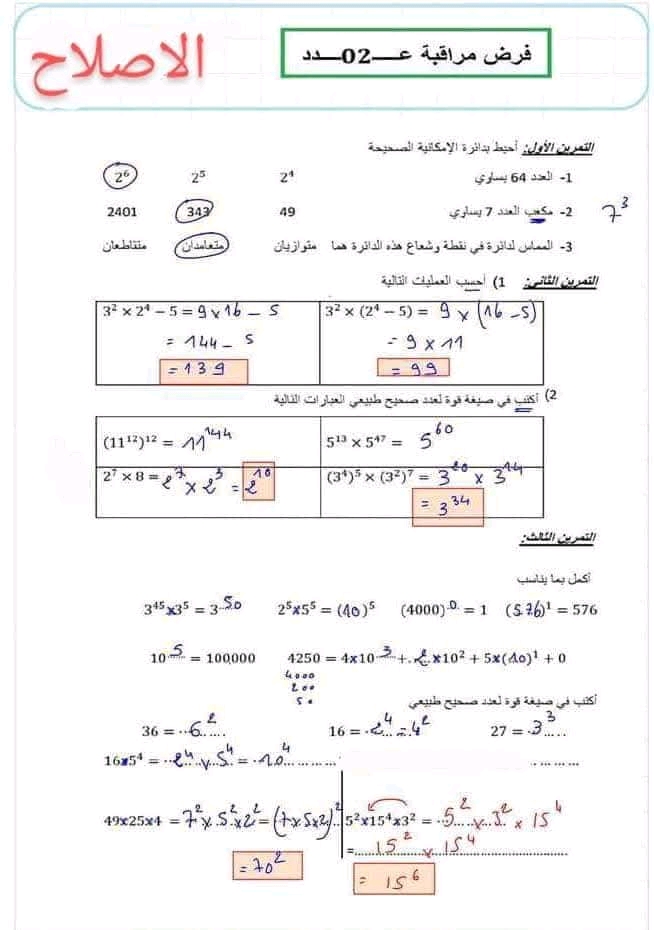 الاصلاح
فرض مراقبة عـــ02ـــدد
التمرين الأول: أحيط بدائرة الإمكانية الصحيحة
1- العدد 64 يساوي 2⁴ 2⁵ 2⁶
2- مكعب العدد 7 يساوي 49 343 2401 7³
3- المماس لدائرة في نقطة وشعاع هذه الدائرة هما متوازيان متعامدان متقاطعان
التمرين الثاني: 1) أحسب العمليات التالية
3² × 2⁴ − 5 = 9 × 16 − 5
= 144 − 5
= 139
3² × (2⁴ − 5) = 9 × (16 − 5)
= 9 × 11
= 99
2) أكتب في صيغة قوة لعدد صحيح طبيعي العبارات التالية
(11¹²)¹² = 11¹⁴⁴
5¹³ × 5⁴⁷ = 5⁶⁰
2⁷ × 8 = 2⁷ × 2³ = 2¹⁰
(3⁴)⁵ × (3²)⁷ = 3²⁰ × 3¹⁴
= 3³⁴
التمرين الثالث:
أكمل بما يناسب
3⁴⁵×3⁵ = 3⁵⁰ 2⁵×5⁵ = (10)⁵ (4000)⁰ = 1 (576)¹ = 576
10⁵ = 100,000 4250 = 4×10³ + 2×10² + 5×(10)¹ + 0
4000
200
50
أكتب في صيغة قوة لعدد صحيح طبيعي
36 = 6² 16 = 2⁴ = 4² 27 = 3³
16×5⁴ = 2⁴ × 5⁴ = 10⁴
49×25×4 = 7² × 5² × 2² = (7×5×2)²
= 70²
5²×15⁴×3² = 5² × 3² × 15⁴
= 15² × 15⁴
= 15⁶